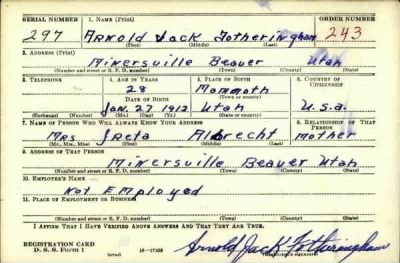 SERIAL NUMBER 1. NAME (Print) ORDER NUMBER
297 Arnold Jack Fotheringham 243
(First) (Middle) (Last)
2. ADDRESS (Print)
Minersville Beaver Utah
(Number and street or R. F. D. number) (Town) (County) (State)
3. TELEPHONE 4. AGE IN YEARS 5. PLACE OF BIRTH 6. COUNTRY OF CITIZENSHIP
28 Mammoth
DATE OF BIRTH (Town or county)
Jan. 27 1912 Utah U.S.A.
(Exchange) (Number) (Mo.) (Day) (Yr.) (State or country)
7. NAME OF PERSON WHO WILL ALWAYS KNOW YOUR ADDRESS 8. RELATIONSHIP OF THAT PERSON
Mrs Greta Albrecht Mother
(Mr., Mrs., Miss) (First) (Middle) (Last)
9. ADDRESS OF THAT PERSON
Minersville Beaver Utah
(Number and street or R. F. D. number) (Town) (County) (State)
10. EMPLOYER'S NAME
Not Employed
11. PLACE OF EMPLOYMENT OR BUSINESS
(Number and street or R. F. D. number) (Town) (County) (State)
I AFFIRM THAT I HAVE VERIFIED ABOVE ANSWERS AND THAT THEY ARE TRUE.
REGISTRATION CARD
D. S. S. Form 1 Arnold Jack Fotheringham